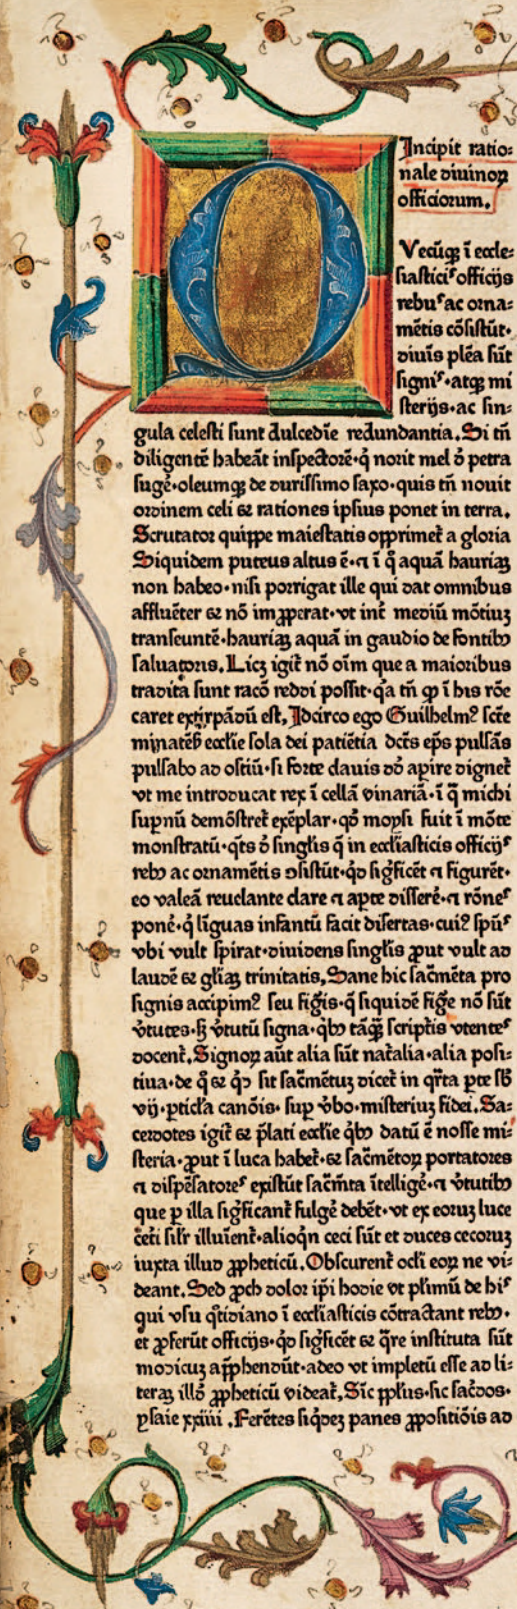 Incipit ratio⸗
nale diuinoꝝ
officiorum.
Q
Vecũqꝫ ĩ eccle⸗
siasticis officijs
rebus ac orna⸗
mẽtis cõsistũt·
diuis plẽa sũt
signis·atqꝫ mi
sterijs·ac sin⸗
gula celesti sunt dulcedĩe redundantia. Si tñ
diligentẽ habeãt inspectorẽ·q̓ norit mel d̓ petra
sugẽ·oleumqꝫ de durissimo saxo·quis tñ nouit
ordinem celi ⁊ rationes ipsius ponet in terra.
Scrutator quippe maiestatis opprimet̃ a gloria
Siquidem puteus altus ẽ·⁊ ĩ q̃ aquã hauriaꝫ
non habeo·nisi porrigat ille qui dat omnibus
affluẽter ⁊ nõ im ꝓperat·vt int̃ mediũ mõtiuꝫ
transeuntẽ·hauriaꝫ aquã in gaudio de fontibꝫ
saluatoris. Licꝫ igit̃ nõ oĩm que a maioribus
tradita sunt racõ reddi possit·q̃a tñ ꝙ ĩ his rõe
caret extirpãdũ est, Idcirco ego Guilhelmꝰ scẽ
mĩnateñ eccl̃ie sola dei patiẽtia dc̃ts ep̃s pulsãs
pulsabo ad ostiũ·si forte clauis dd̓ apire dignet̃
vt me introducat rex ĩ cellã vinariã·ĩ q̃ michi
supnũ demõstret̃ exẽplar·qd̓ moysi fuit ĩ mõte
monstratũ·q̃ts d̓ singl̃is q̃ in eccl̃iasticis officijs
rebꝫ ac ornamẽtis ↄsistũt·qd̓ sig̃ficẽt ⁊ figurẽt·
eo valeã reuelante clare ⁊ apte disserẽ·⁊ rõnes
ponẽ·q̓ lĩguas infantũ facit disertas·cuiꝰ spũs
vbi vult spirat·diuidens singl̃is ꝓut vult ad
laudẽ ⁊ gl̃iaꝫ trinitatis, Sane hic sac̃mẽta pro
signis accipimꝰ seu fig̃is·q̃ siquidẽ fig̃e nõ sũt
v̓tutes·sꝫ v̓tutũ signa·q̃bꝫ tãq̃ꝫ script̃is vtentes
docent̃, Signoꝝ aũt alia sũt nat̃alia·alia posi⸗
tiua·de q̃ ⁊ qd̓ sit sac̃mẽtuꝫ dicet̃ in q̃rta pte sb̃
vij·pticl̃a canõis·sup v̓bo·misteriuꝫ fidei, Sa⸗
cerdotes igit̃ ⁊ p̃lati eccl̃ie q̃bꝫ datũ ẽ nosse mi⸗
steria·ꝓut ĩ luca habet̃·⁊ sac̃mẽtoꝝ portatores
⁊ dispẽsatores existũt sac̃mta ĩtelligẽ·⁊ v̓tutibꝫ
que ꝑ illa sig̃ficant̃ fulgẽ debẽt·vt ex eoruꝫ luce
cet̃i sil̃r illuĩent̃·alioq̃n ceci sũt et duces cecoruꝫ
iuxta illud ꝓpheticũ. Obscurent̃ ocl̃i eoꝝ ne vi⸗
deant. Sed ꝓch dolor ip̃i hodie vt pl̃imũ de his
qui vsu q̃tidiano ĩ eccl̃iasticis cõtractant rebꝫ·
et ꝓferũt officijs·qd̓ sig̃ficẽt ⁊ q̃re instituta sũt
modicuꝫ app̃hendũt·adeo vt impletũ esse ad li⸗
teraꝫ illd̓ ꝓpheticũ videat̃, Sic pp̃lus·sic sac̃dos·
ysaie xxiiii. Ferẽtes siq̃deꝫ panes ꝓpositiõis ad